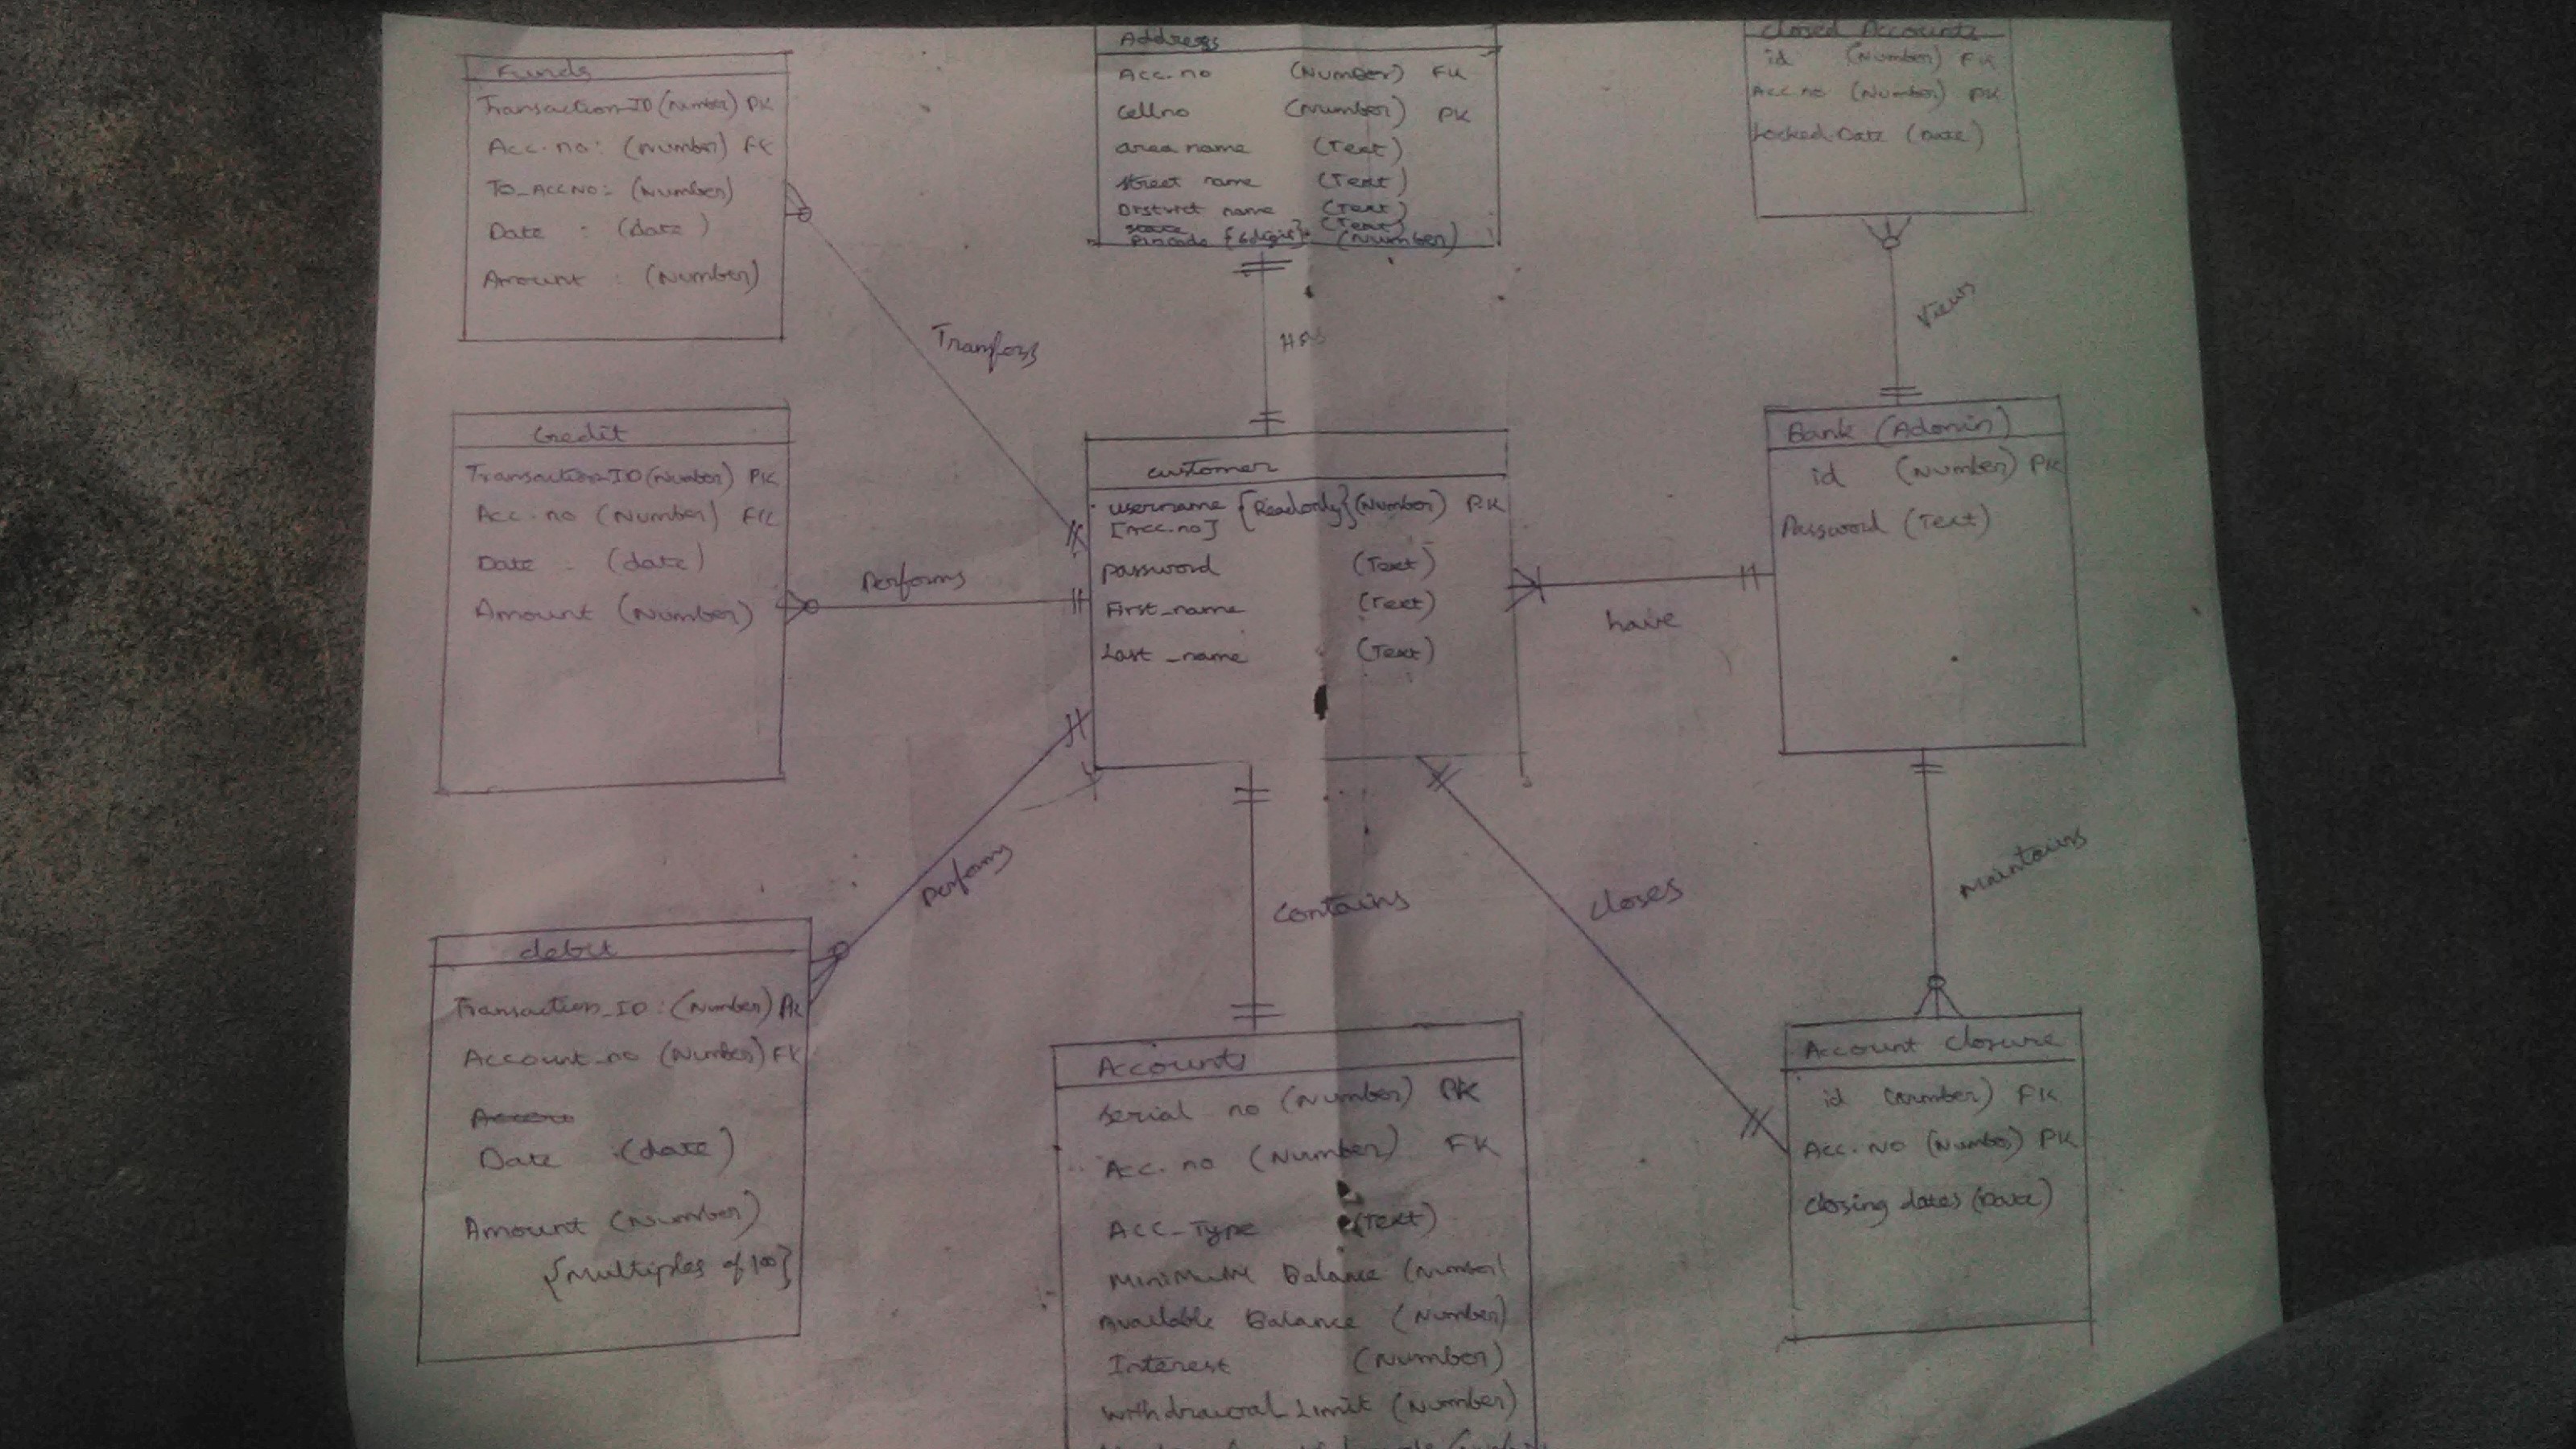 Funds
Transaction_ID (Number) PK
Acc.no: (Number) FK
TO_ACCNO: (Number)
Date : (date)
Amount : (Number)
Address
Acc.no (Number) FK
cellno (Number) PK
area name (Text)
street name (Text)
District name (Text)
state (Text)
Pincode {6digit} (Number)
closed Accounts
id (Number) FK
Acc.no (Number) PK
Locked.Date (Date)
Transfers
HAS
Views
Credit
Transaction_ID (Number) PK
Acc.no (Number) FK
Date : (date)
Amount (Number)
Performs
customer
username {Readonly} (Number) PK
[Acc.no]
password (Text)
First_name (Text)
Last_name (Text)
have
Bank (Admin)
id (Number) PK
Password (Text)
Performs
contains
closes
Maintains
debit
Transaction_ID : (Number) PK
Account_no (Number) FK
Date :(date)
Amount (Number)
{Multiples of 100}
Accounts
Serial no (Number) PK
Acc.no (Number) FK
Acc_Type (Text)
Minimum Balance (Number)
Available Balance (Number)
Interest (Number)
Withdrawal Limit (Number)
Account closure
id (number) FK
Acc.No (Number) PK
closing dates (Date)